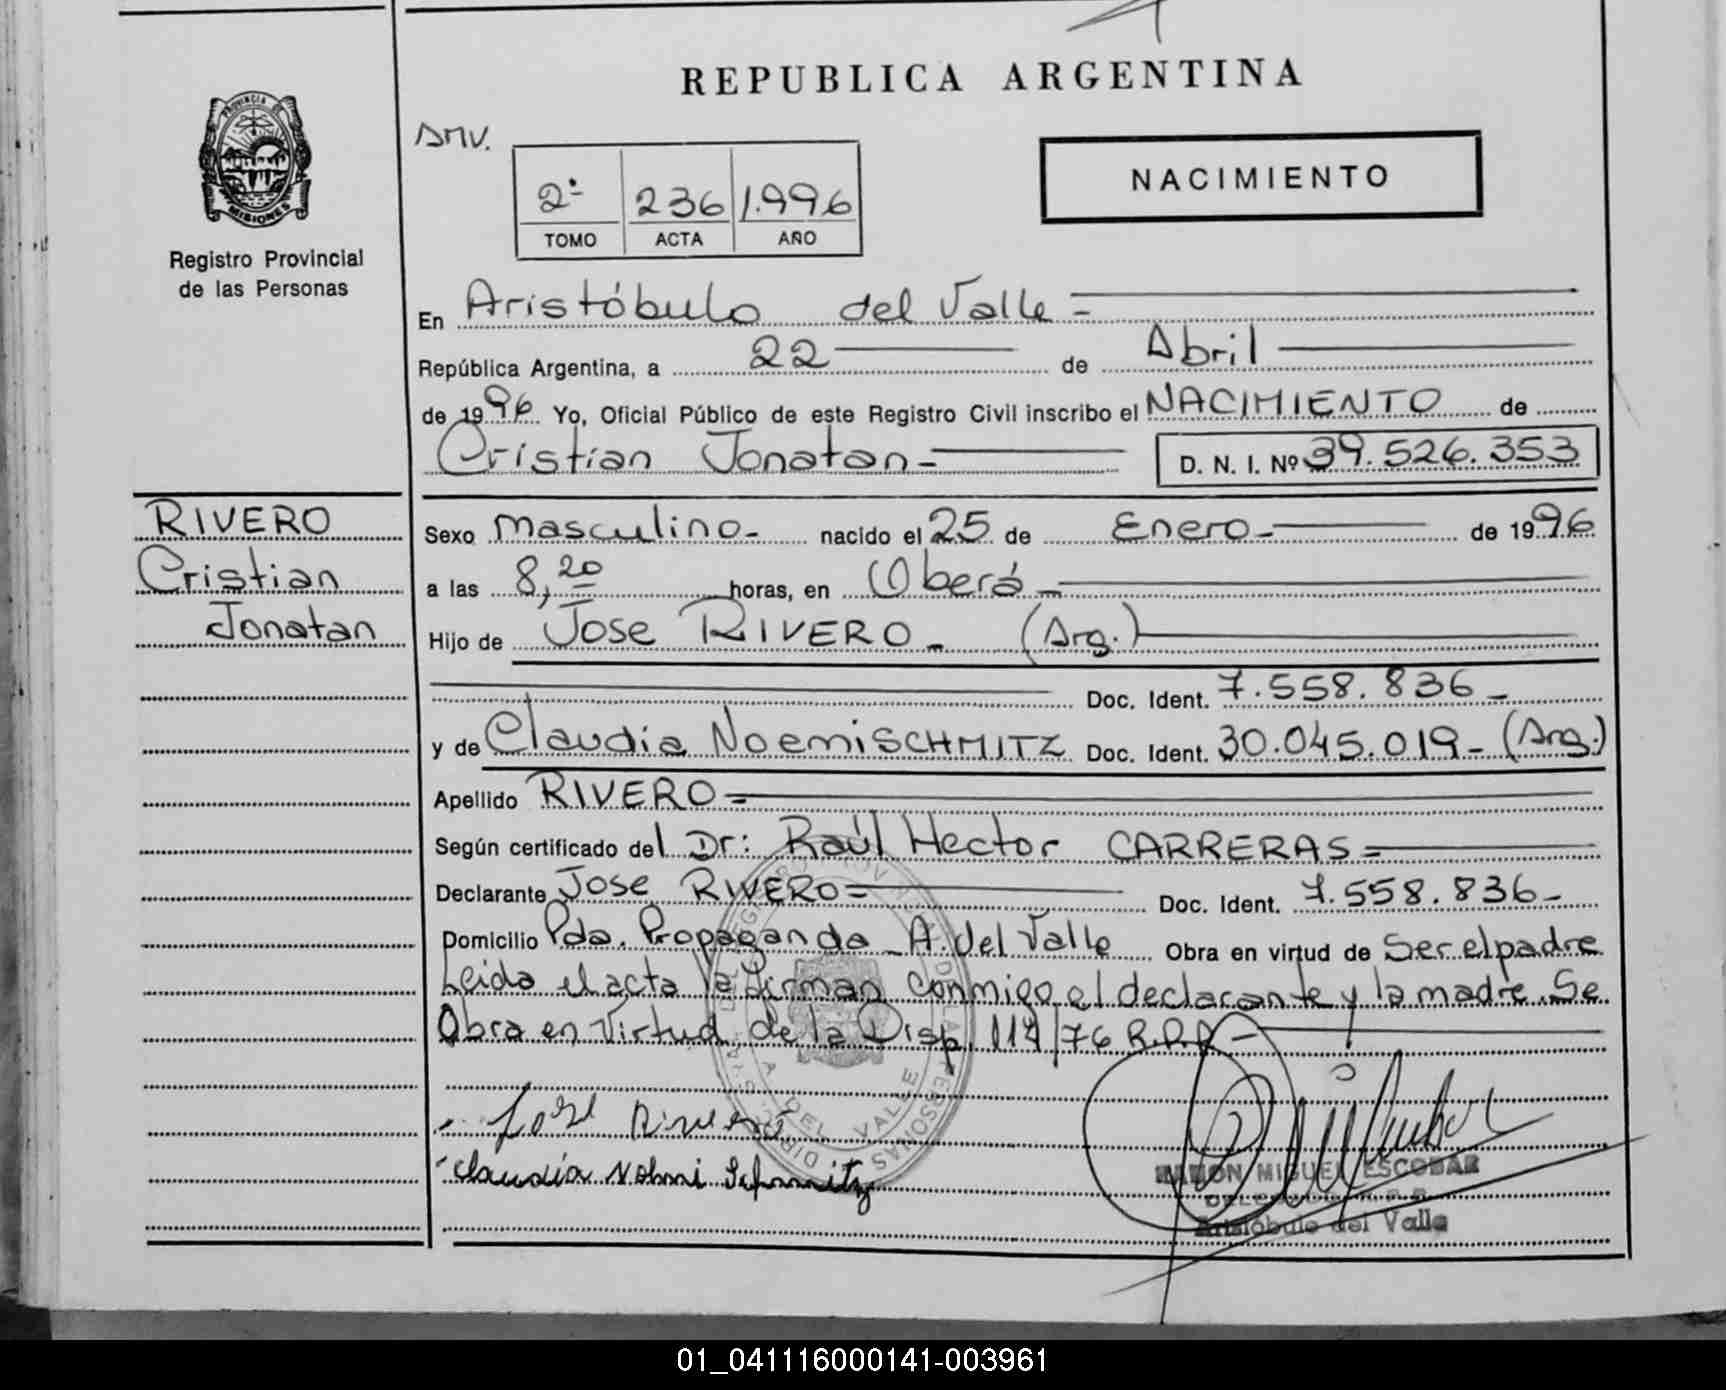 REPUBLICA ARGENTINA
PROVINCIA DE
MISIONES
Registro Provincial
de las Personas
DMV.
2º 236 1.996
TOMO ACTA AÑO
NACIMIENTO
En Aristóbulo del Valle -
República Argentina, a 22 de Abril
de 1996 Yo, Oficial Público de este Registro Civil inscribo el NACIMIENTO de
Cristian Jonatan- D. N. I. Nº 39.526.353
RIVERO
Cristian
Jonatan
Sexo masculino- nacido el 25 de Enero- de 1996
a las 8,20 horas, en Oberá-
Hijo de Jose RIVERO- (Arg.)
Doc. Ident. 7.558.836-
y de Claudia Noemi SCHMITZ Doc. Ident. 30.045.019- (Arg.)
Apellido RIVERO=
Según certificado del Dr: Raúl Hector CARRERAS=
Declarante Jose RIVERO= Doc. Ident. 7.558.836-
Domicilio Pda. Propaganda - A. del Valle Obra en virtud de Ser el padre
Leida el acta la firman conmigo el declarante y la madre. Se
Obra en Virtud de la Disp. 114/76 R.P.P-
Jose Rivero
Claudia Nohmi Schmitz
RAMON MIGUEL ESCOBAR
DELEGADO R.P.P.
Aristóbulo del Valle
A DEL VALLE
01_041116000141-003961